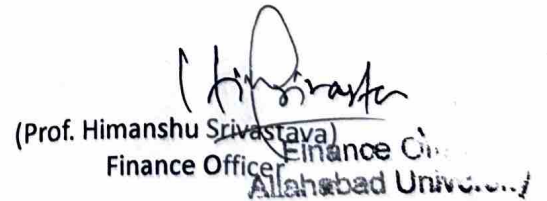 (Prof. Himanshu Srivastava)
Finance Officer
Finance
Allahabad University